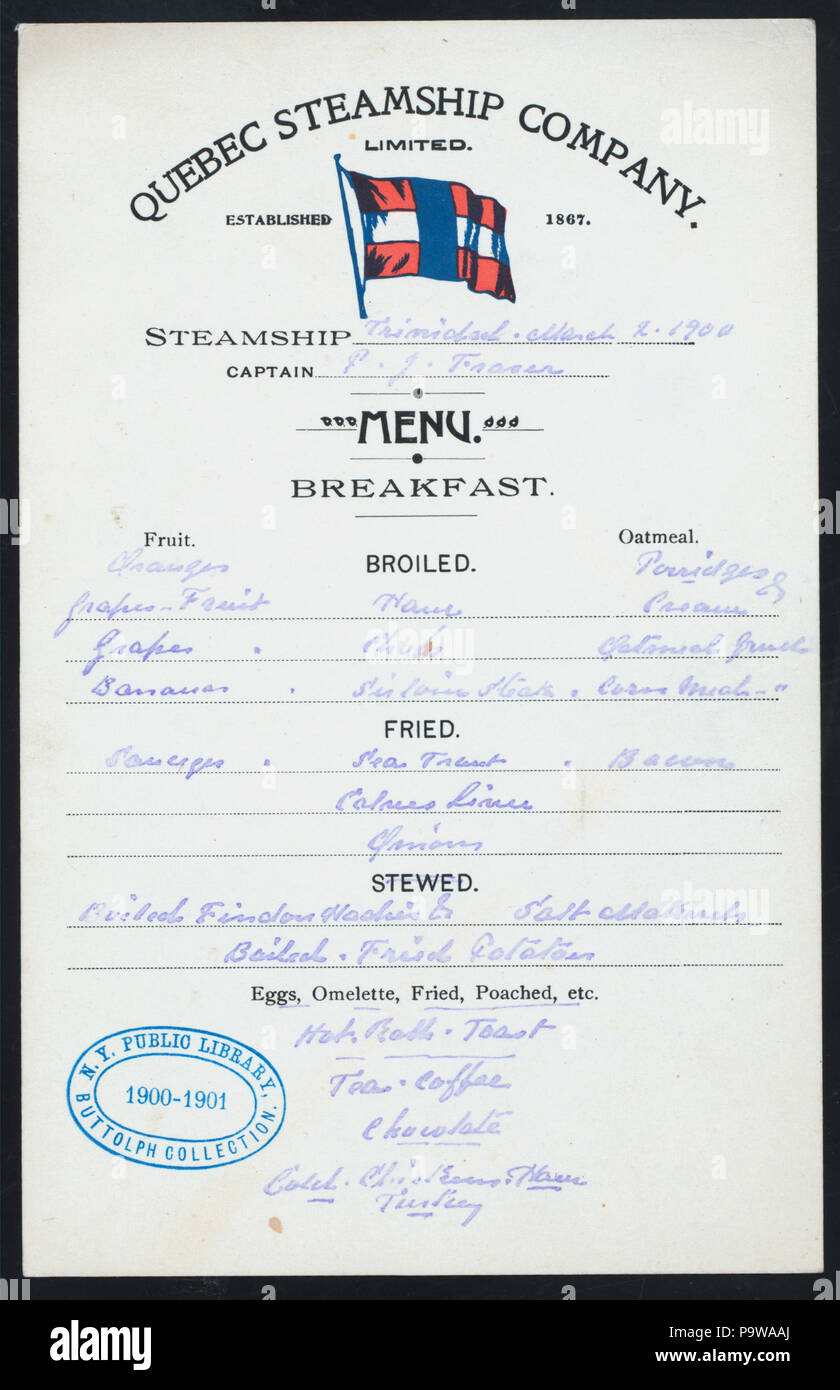 QUEBEC STEAMSHIP COMPANY.
LIMITED.
ESTABLISHED 1867.
STEAMSHIP Trinidad. March 2. 1900
CAPTAIN P. J. Fraser
MENU.
BREAKFAST.
Fruit. Oatmeal.
Oranges BROILED. Porridges &
Grapes-Fruit Ham Cream
Grapes Oatmeal Gruel
Bananas Sirloin Steak. Corn Meal - "
FRIED.
Sea Trout Bacon
Calves Liver
Onions
STEWED.
Boiled Findon Salt
Boiled. Fried Potatoes
Eggs, Omelette, Fried, Poached, etc.
Hot Rolls. Toast
Tea. Coffee
Chocolate
Cold. Chickens. Ham
Turkey
N. Y. PUBLIC LIBRARY,
1900-1901
BUTTOLPH COLLECTION.
alamy
alamy
Image ID: P9WAAJ
www.alamy.com